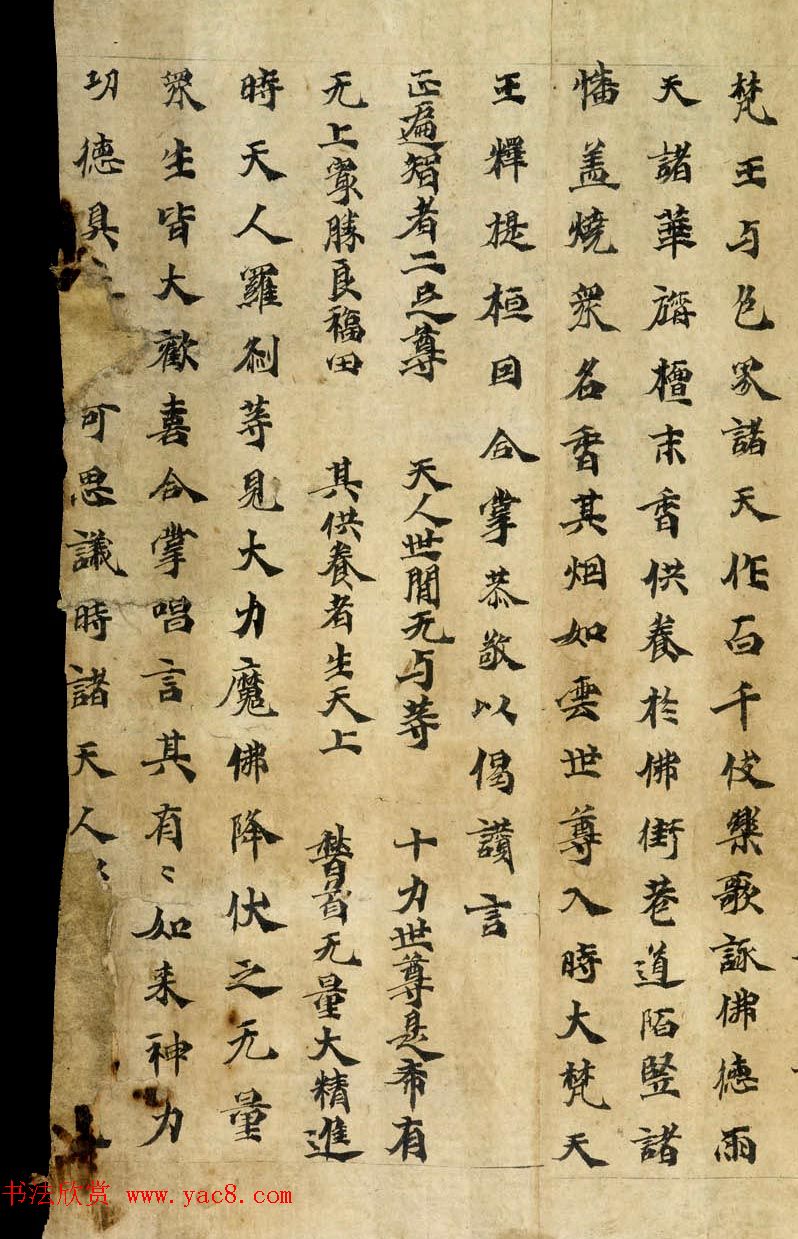 梵王与色界諸天作百千伎樂歌詠佛德雨
天諸華旃檀末香供養於佛街巷道陌竪諸
幡盖燒衆名香其烟如雲世尊入時大梵天
王釋提桓因合掌恭敬以偈讚言
正遍智者二足尊 天人世間无与等 十力世尊是希有
无上㝡勝良福田 其供養者生天上 稽首无量大精進
時天人羅刹等見大力魔佛降伏之无量
衆生皆大歡喜合掌唱言其有〻如来神力
功德具 可思議時諸天人
书法欣赏 www.yac8.com